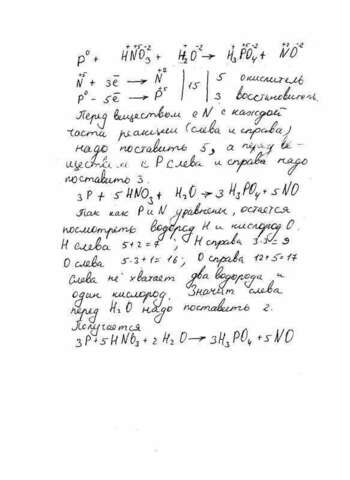 P⁰ + H⁺¹N⁺⁵O₃⁻² + H₂⁺O⁻² → H₃⁺P⁺⁵O₄⁻² + N⁺²O⁻²
N⁺⁵ + 3e̅ → N⁺² | 15 | 5 окислитель
P⁰ - 5e̅ → P⁵ | | 3 восстановитель
Перед веществом с N с каждой
части реакции (слева и справа)
надо поставить 5, а перед ве-
ществом с P слева и справа надо
поставить 3.
3P + 5HNO₃ + H₂O → 3H₃PO₄ + 5NO
Так как P и N уравнены, остается
посмотреть водород H и кислород O.
H слева 5+2=7 ; H справа 3·3=9
O слева 5·3+1=16; O справа 12+5=17
Слева не хватает два водорода и
один кислород. Значит слева
перед H₂O надо поставить 2.
Получается
3P+5HNO₃+2H₂O→3H₃PO₄+5NO